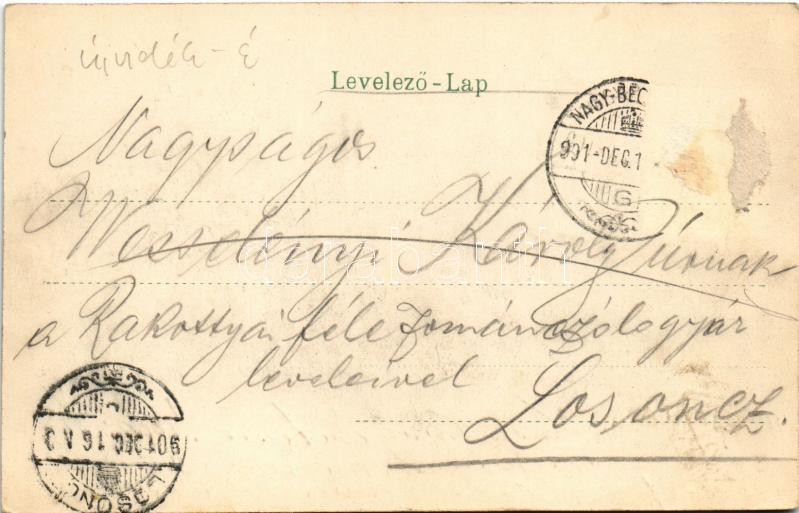 Újvidék - É
Levelező-Lap
NAGY-BEC
901-DEC.1
G
Nagyságos
Wesselényi Károly úrnak
a Rakottyai féle zománczólagyár
leveleivel
Losoncz.
901 DEC. 16
LOSONC
darabanth